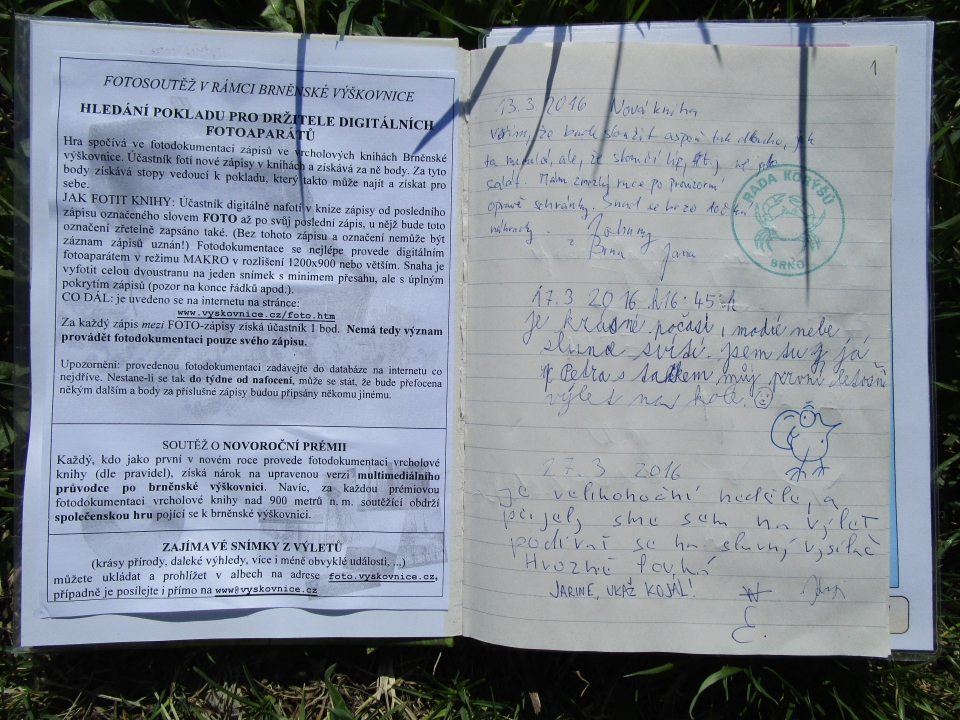 FOTOSOUTĚŽ V RÁMCI BRNĚNSKÉ VÝŠKOVNICE
HLEDÁNÍ POKLADU PRO DRŽITELE DIGITÁLNÍCH
FOTOAPARÁTŮ
Hra spočívá ve fotodokumentaci zápisů ve vrcholových knihách Brněnské
výškovnice. Účastník fotí nové zápisy v knihách a získává za ně body. Za tyto
body získává stopy vedoucí k pokladu, který takto může najít a získat pro
sebe.
JAK FOTIT KNIHY: Účastník digitálně nafotí v knize zápisy od posledního
zápisu označeného slovem FOTO až po svůj poslední zápis, u nějž bude toto
označení zřetelně zapsáno také. (Bez tohoto zápisu a označení nemůže být
záznam zápisů uznán!) Fotodokumentace se nejlépe provede digitálním
fotoaparátem v režimu MAKRO v rozlišení 1200x900 nebo větším. Snaha je
vyfotit celou dvoustranu na jeden snímek s minimem přesahu, ale s úplným
pokrytím zápisů (pozor na konce řádků apod.).
CO DÁL: je uvedeno se na internetu na stránce:
www.vyskovnice.cz/foto.htm
Za každý zápis mezi FOTO-zápisy získá účastník 1 bod. Nemá tedy význam
provádět fotodokumentaci pouze svého zápisu.
Upozornění: provedenou fotodokumentaci zadávejte do databáze na internetu co
nejdříve. Nestane-li se tak do týdne od nafocení, může se stát, že bude přefocena
někým dalším a body za příslušné zápisy budou připsány někomu jinému.
SOUTĚŽ O NOVOROČNÍ PRÉMII
Každý, kdo jako první v novém roce provede fotodokumentaci vrcholové
knihy (dle pravidel), získá nárok na upravenou verzi multimediálního
průvodce po brněnské výškovnici. Navíc, za každou prémiovou
fotodokumentaci vrcholové knihy nad 900 metrů n. m. soutěžící obdrží
společenskou hru pojící se k brněnské výškovnici.
ZAJÍMAVÉ SNÍMKY Z VÝLETŮ
(krásy přírody, daleké výhledy, více i méně obvyklé události, ...)
můžete ukládat a prohlížet v albech na adrese foto.vyskovnice.cz,
případně je posílejte i přímo na www@vyskovnice.cz
1
13.3.2016 Nová kniha
Věřím, že bude sloužit aspoň tak dlouho, jak
ta minulá, ale, že skončí líp,
Mám zmrzlý ruce po provizorní
opravě schránky. Snad se brzo dočká
náhrady.
Brna Jana
RADA KORÝŠŮ
BRNO
17.3 2016 h16:45
je krásné počasí, modré nebe
slunce svítí. jsem tu já
Petra s taťkem můj první letošní
výlet na kole.
27.3 2016
Je velikonoční neděle, a
přijeli sme sem na výlet
podívat se na slavný vysílač
Hrozně fouká
JARINE, UKAŽ KOJÁL!
E.